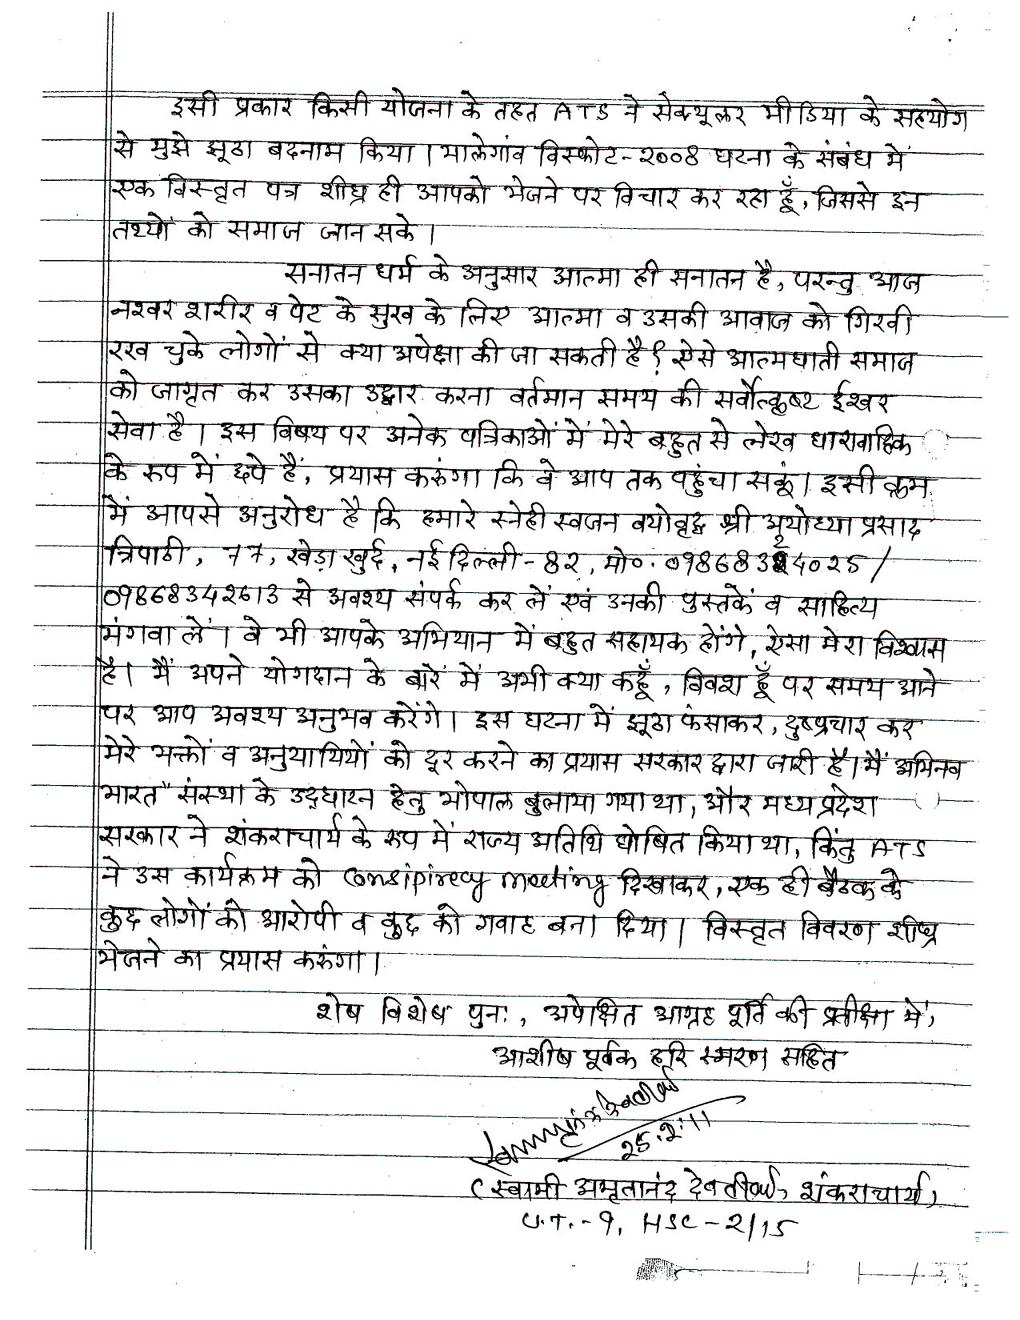 इसी प्रकार किसी योजना के तहत ATS ने सेक्यूलर मीडिया के सहयोग
से मुझे झूठा बदनाम किया। मालेगांव विस्फोट-2008 घटना के संबंध में
एक विस्तृत पत्र शीघ्र ही आपको भेजने पर विचार कर रहा हूँ, जिससे इन
तथ्यों को समाज जान सके।
सनातन धर्म के अनुसार आत्मा ही सनातन है, परन्तु आज
नश्वर शरीर व पेट के सुख के लिए आत्मा व उसकी आवाज को गिरवी
रख चुके लोगों से क्या अपेक्षा की जा सकती है? ऐसे आत्मघाती समाज
को जागृत कर उसका उद्धार करना वर्तमान समय की सर्वोत्कृष्ट ईश्वर
सेवा है। इस विषय पर अनेक पत्रिकाओं में मेरे बहुत से लेख धारावाहिक
के रूप में छपे हैं, प्रयास करुंगा कि वे आप तक पहुंचा सकूं। इसी क्रम
में आपसे अनुरोध है कि हमारे स्नेही स्वजन वयोवृद्ध श्री अयोध्या प्रसाद
त्रिपाठी, 77, खेड़ा खुर्द, नई दिल्ली-82, मो०. 09868324025/
09868342613 से अवश्य संपर्क कर लें एवं उनकी पुस्तकें व साहित्य
मंगवा लें। वे भी आपके अभियान में बहुत सहायक होंगे, ऐसा मेरा विश्वास
है। मैं अपने योगदान के बारें में अभी क्या कहूँ, विवश हूँ पर समय आने
पर आप अवश्य अनुभव करेंगे। इस घटना में झूठा फंसाकर, दुष्प्रचार कर
मेरे भक्तों व अनुयायियों को दूर करने का प्रयास सरकार द्वारा जारी है। मैं अभिनव
भारत" संस्था के उद्घाटन हेतु भोपाल बुलाया गया था, और मध्य प्रदेश
सरकार ने शंकराचार्य के रूप में राज्य अतिथि घोषित किया था, किंतु ATS
ने उस कार्यक्रम को Consipirecy meeting दिखाकर, एक ही बैठक के
कुछ लोगों को आरोपी व कुछ को गवाह बना दिया। विस्तृत विवरण शीघ्र
भेजने का प्रयास करुंगा।
शेष विशेष पुनः, अपेक्षित आग्रह पूर्ति की प्रतीक्षा में,
आशीष पूर्वक हरि स्मरण सहित
25.2.11
(स्वामी अमृतानंद देवतीर्थ, शंकराचार्य)
U.T.-9, HSC-2/15